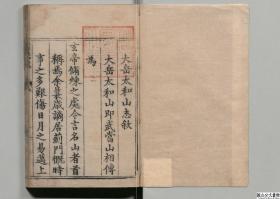 大岳太和山志敘
大岳太和山即武當山相傳
為
玄帝脩煉之處今言名山者首
稱焉余
歲謫居薊門慨時
事之多艱傷日月之易邁上